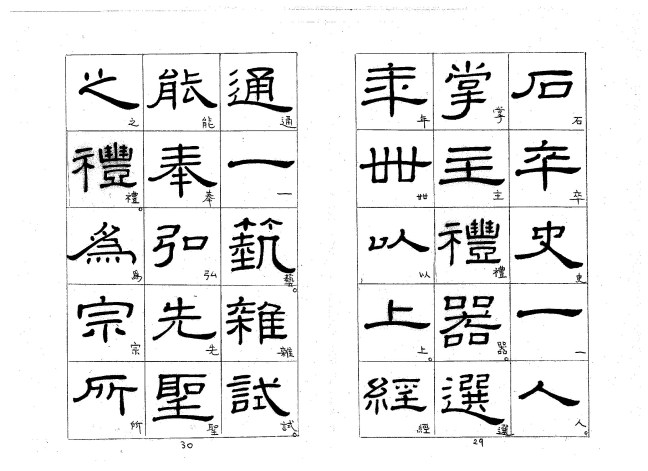 石卒史一人
石卒史一人。
掌主禮器選
掌主禮器。選
年卌以上經
年卌以上。經
29
通一藝雜試
通一藝。雜試。
能奉弘先聖
能奉弘先聖
之禮為宗所
之禮。為宗所
30